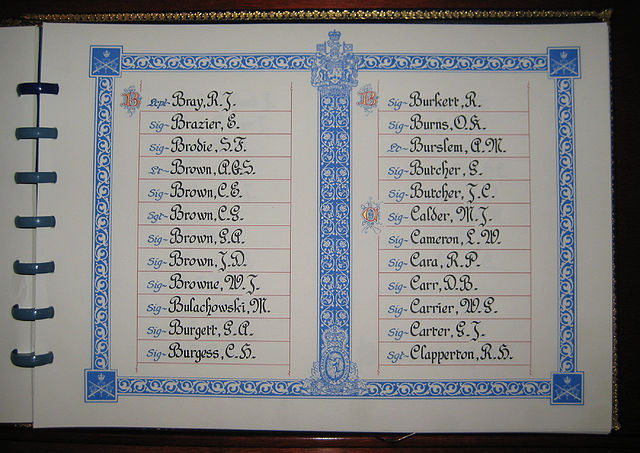 B Lcpl~ Bray, R. J.
Sig~ Brazier, E.
Sig~ Brodie, S. F.
Lt~ Brown, A. G. S.
Sig~ Brown, C. E.
Sgt~ Brown, C. G.
Sig~ Brown, G. A.
Sig~ Brown, J. D.
Sig~ Browne, W. J.
Sig~ Bulachowski, M.
Sig~ Burgett, G. A.
Sig~ Burgess, C. H.
B Sig~ Burkett, R.
Sig~ Burns, O. K.
Lt~ Burslem, A. M.
Sig~ Butcher, G.
Sig~ Butcher, J. C.
C Sig~ Calder, M. J.
Sig~ Cameron, L. W.
Sig~ Cara, R. P.
Sig~ Carr, D. B.
Sig~ Carrier, W. G.
Sig~ Carter, G. J.
Sgt~ Clapperton, R. H.